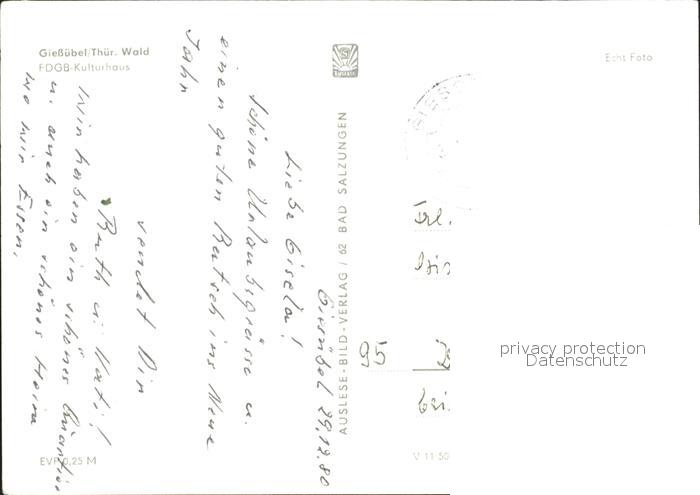 Gießübel/Thür. Wald
FDGB-Kulturhaus
Echt Foto
AUSLESE-BILD-VERLAG / 62 BAD SALZUNGEN
Giessübel 29.12.80
Liebe Gisela!
Schöne Urlaubsgrüsse u.
einen guten Rutsch ins Neue
Jahr
sendet Dir
Ruth u. Kati!
Wir haben ein schönes Quartier
u. auch ein schönes Heim
wo wir Essen.
Frl.
95
EVP 0,25 M
V 11 50
privacy protection
Datenschutz